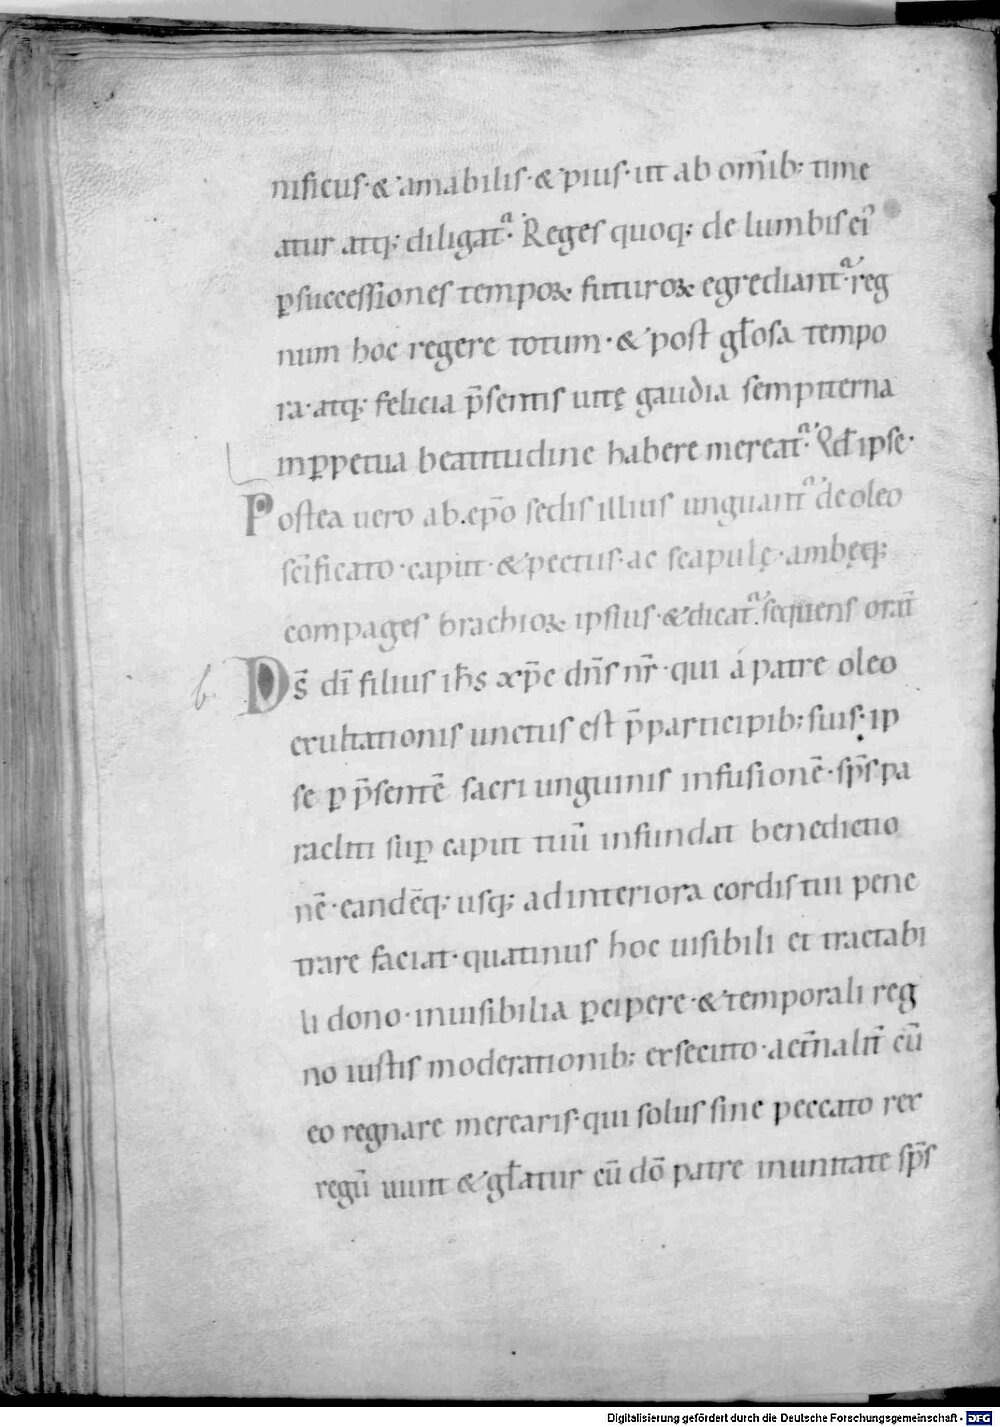 nificus·&amabilis·&pius·ut ab om̅ib; time
atur atq; diligat᷑· Reges quoq; de lumbis ei᷒
ꝑsuccessiones tempoꝝ futuroꝝ egrediant᷑·reg
num hoc regere totum·& post gl̅osa tempo
ra·atq; felicia p̅sentis uitę gaudia sempiterna
inꝑpetua beatitudine habere mereat᷑· Qd̅ ipse·
Postea uero ab.ep̅o sedis illius unguant᷑ de oleo
sc̅ificato·caput·&pectus·ac scapulę·ambęq;
compages brachioꝝ ipsius·&dicat᷑.sequens orat̅
b.
Ds̅ di̅ filius ih̅s xp̅c dn̅s nr̅·qui á patre oleo
exultationis unctus est p̅participib; suis·ip
se ꝑ p̅sente̅ sacri unguinis infusione̅·sp̅s pa
racliti suꝑ caput tuu̅ infundat benedictio
ne̅·eande̅q; usq; ad interiora cordis tui pene
trare faciat·quatinus hoc uisibili et tractabi
li dono·inuisibilia ꝑcipere·&temporali reg
no iustis moderationib; exsecuto·aet̅nalit̅ cu̅
eo regnare merearis·qui solus sine peccato rex
regu̅ uiuit &gl̅atur cu̅ do̅ patre inunitate sp̅s
Digitalisierung gefördert durch die Deutsche Forschungsgemeinschaft - DFG